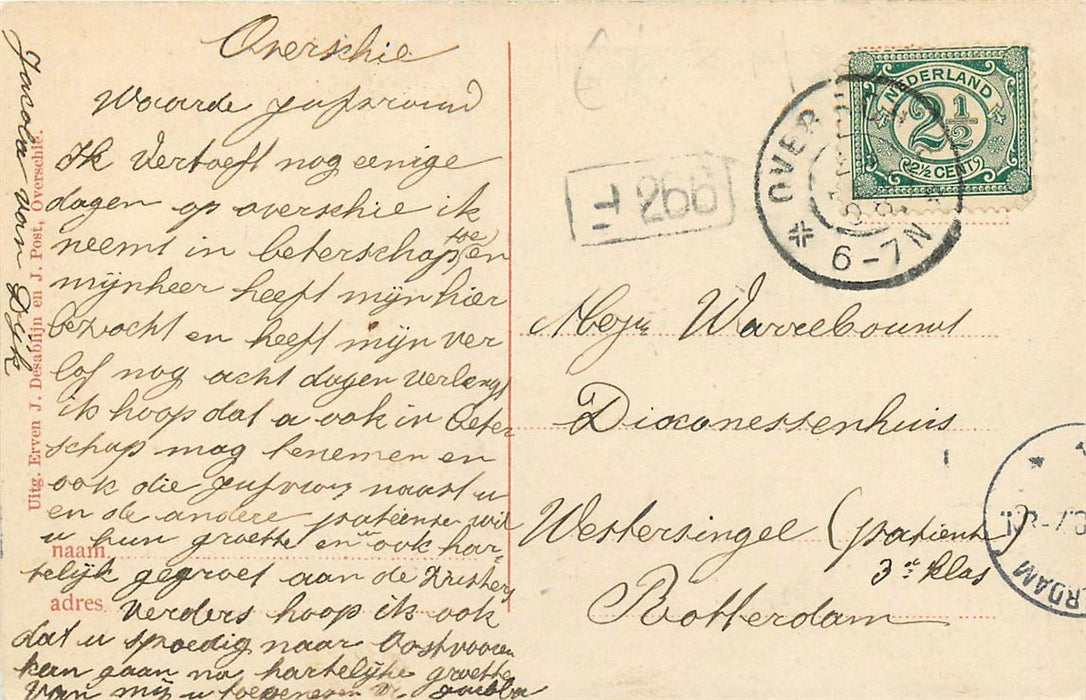 Overschie
Waarde jufvrouw
Ik Vertoeft nog eenige
dagen op overschie ik
neemt in beterschap toe en
mijnheer heeft mijn hier
bezocht en heeft mijn ver
lof nog acht dagen verlengt
ik hoop dat u ook in beter
schap mag tenemen en
ook die jufvrouw naast u
en de andere patiente wil
u hun groette en ook har
telijk gegroet aan de Zusters
Verders hoop ik ook
dat u spoedig naar Oostvoorne
kan gaan na hartelijke groette
van mij u toegenegen
Jacoba
Jacoba van Dijk
Uitg. Erven J. Desablijn en J. Post, Overschie.
naam
adres
266
NEDERLAND
2½
2½ CENT
OVER
6-7N
Mejn Warrebouwt
Diaconessenhuis
Westersingel (patient)
3e klas
Rotterdam
RDAM